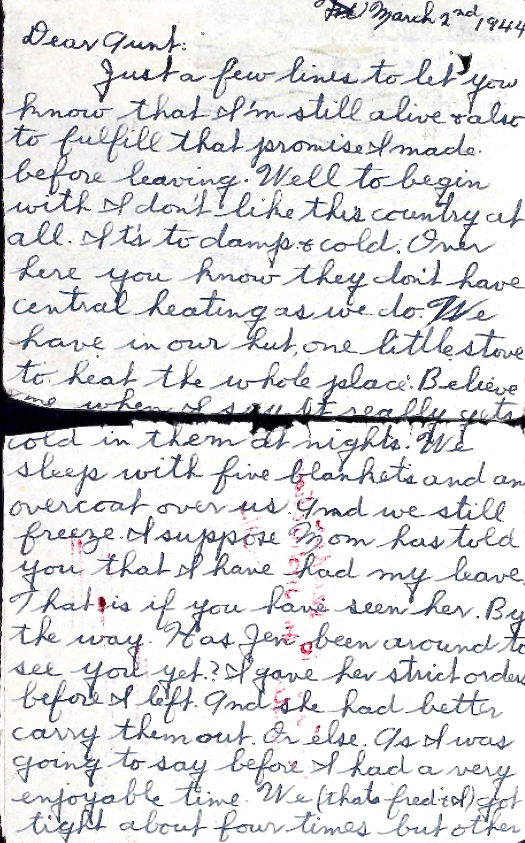 March 2nd 1944
Dear Aunt:
Just a few lines to let you
know that I'm still alive & also
to fulfill that promise I made
before leaving. Well to begin
with I don't like this country at
all. It's to damp & cold. Over
here you know they don't have
central heating as we do. We
have in our hut, one little stove
to heat the whole place. Believe
me when I say it really gets
cold in them at nights. We
sleep with five blankets and an
overcoat over us. And we still
freeze. I suppose Mom has told
you that I have had my leave
That is if you have seen her. By
the way. Has Jen been around to
see you yet.? I gave her strict orders
before I left. And she had better
carry them out. Or else. As I was
going to say before I had a very
enjoyable time. We (thats fred & I) got
tight about four times but other